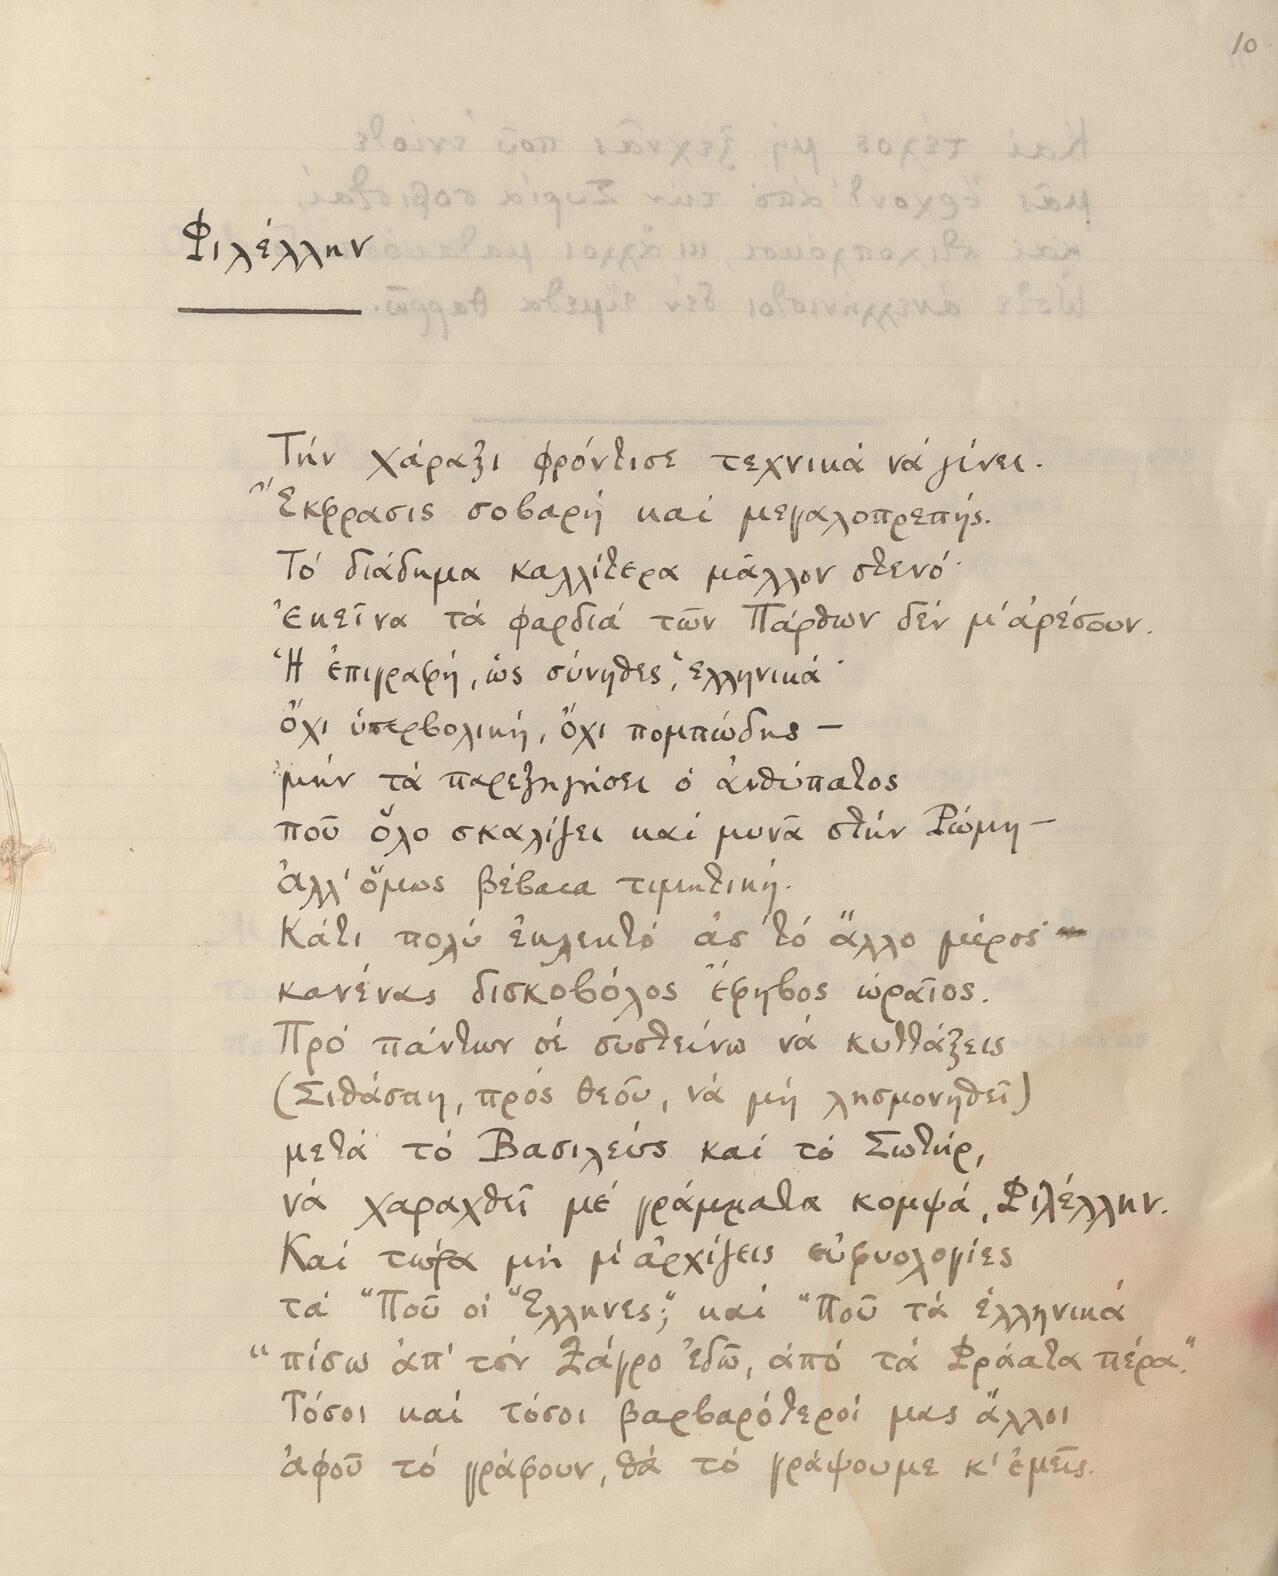 10
Φιλέλλην
Τήν χάραξι φρόντισε τεχνικά νά γίνει.
Ἔκφρασις σοβαρή καί μεγαλοπρεπής.
Τό διάδημα καλλίτερα μᾶλλον στενό·
ἐκεῖνα τά φαρδιά τῶν Πάρθων δέν μ' ἀρέσουν.
Ἡ ἐπιγραφή, ὡς σύνηθες, ἑλληνικά·
ὄχι ὑπερβολική, ὄχι πομπώδης —
μήν τά παρεξηγήσει ὁ ἀνθύπατος
ποῦ ὅλο σκαλίζει καί μυνᾶ στήν Ρώμη —
ἀλλ' ὅμως βέβαια τιμητική.
Κάτι πολύ ἐκλεκτό ἀπ' τό ἄλλο μέρος·
κανένας δισκοβόλος ἔφηβος ὡραῖος.
Πρό πάντων σέ συστείνω νά κυττάξεις
(Σιθάσπη, πρός θεοῦ, νά μή λησμονηθεῖ)
μετά τό Βασιλεύς καί τό Σωτήρ,
νά χαραχθεῖ μέ γράμματα κομψά, Φιλέλλην.
Καί τώρα μή μ' ἀρχίζεις εὐφυολογίες
τά "Ποῦ οἱ Ἕλληνες;" καί "Ποῦ τά ἑλληνικά
"πίσω ἀπ' τόν Ζάγρο ἐδῶ, ἀπό τά Φράατα πέρα".
Τόσοι καί τόσοι βαρβαρότεροί μας ἄλλοι
ἀφοῦ τό γράφουν, θά τό γράψουμε κ' ἐμεῖς.